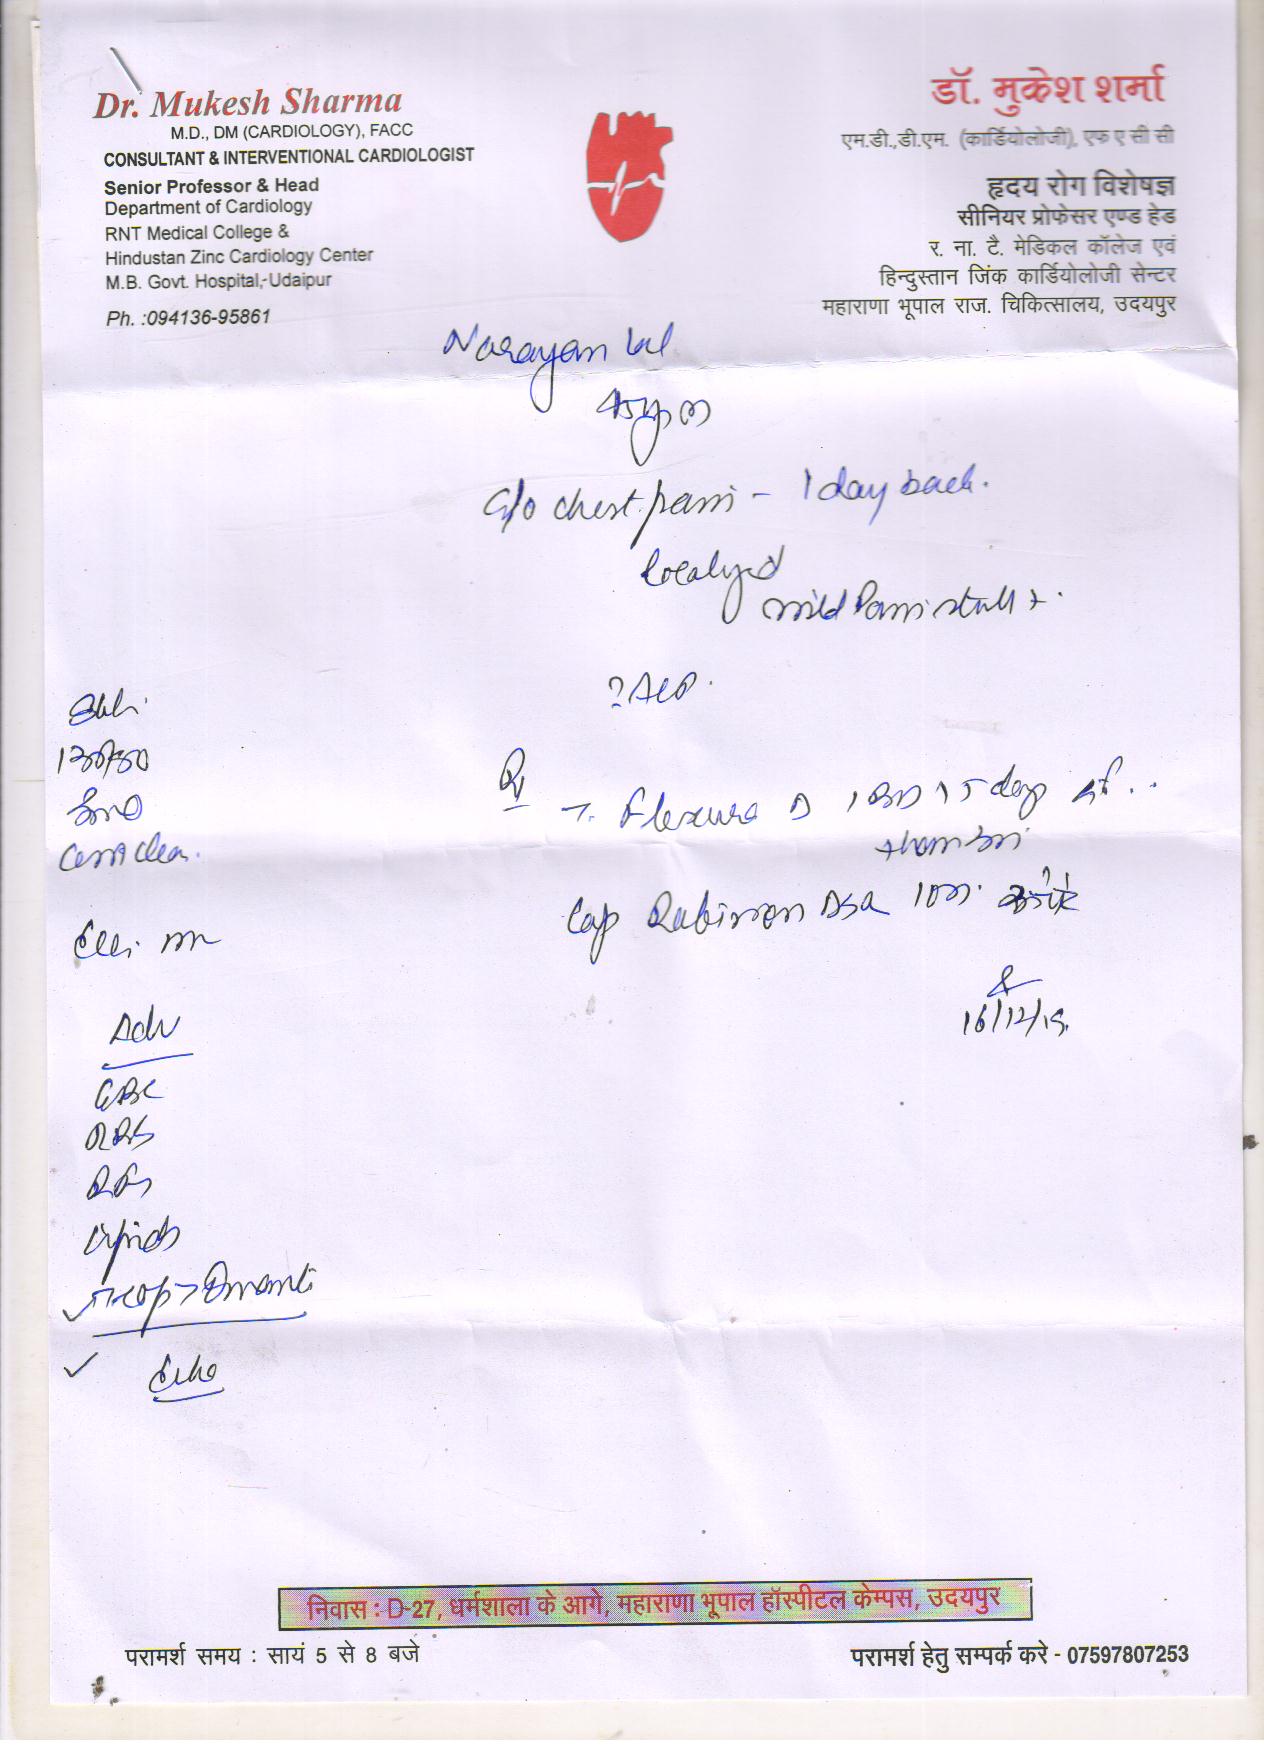 Dr. Mukesh Sharma
M.D., DM (CARDIOLOGY), FACC
CONSULTANT & INTERVENTIONAL CARDIOLOGIST
Senior Professor & Head
Department of Cardiology
RNT Medical College &
Hindustan Zinc Cardiology Center
M.B. Govt. Hospital,-Udaipur
Ph. :094136-95861
डॉ. मुकेश शर्मा
एम.डी.,डी.एम. (कार्डियोलोजी), एफ ए सी सी
हृदय रोग विशेषज्ञ
सीनियर प्रोफेसर एण्ड हेड
र. ना. टै. मेडिकल कॉलेज एवं
हिन्दुस्तान जिंक कार्डियोलोजी सेन्टर
महाराणा भूपाल राज. चिकित्सालय, उदयपुर
Narayan lal
C/o chest pain - 1 day back.
localyzed
mild Pain still +.
Rx
T. Flexura D 1 BD 5 day
Cap Rabimon DSR 1 OD
16/12/19
130/80
Chest clear.
Adv
CBC
RBS
RFT
Lipids
Echo
निवास : D-27, धर्मशाला के आगे, महाराणा भूपाल हॉस्पीटल केम्पस, उदयपुर
परामर्श समय : सायं 5 से 8 बजे
परामर्श हेतु सम्पर्क करे - 07597807253